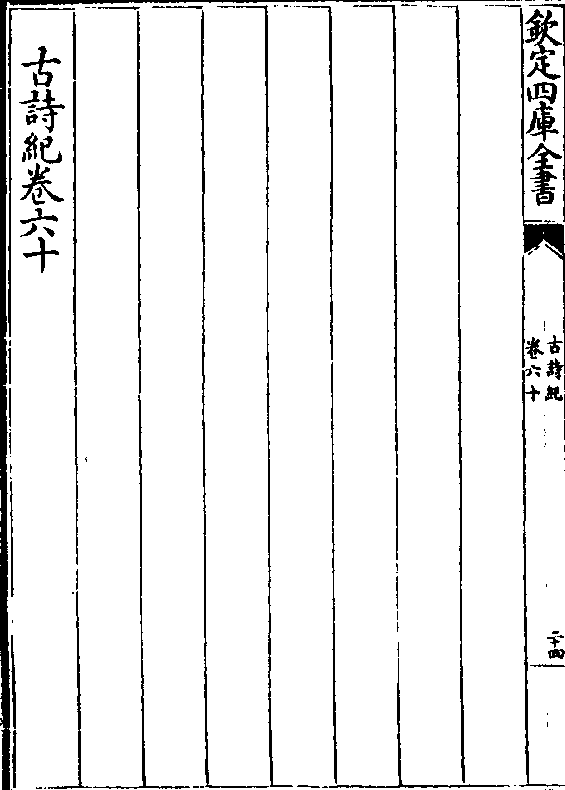 欽定四庫全書
古詩紀
卷六十
二十四
古詩紀卷六十